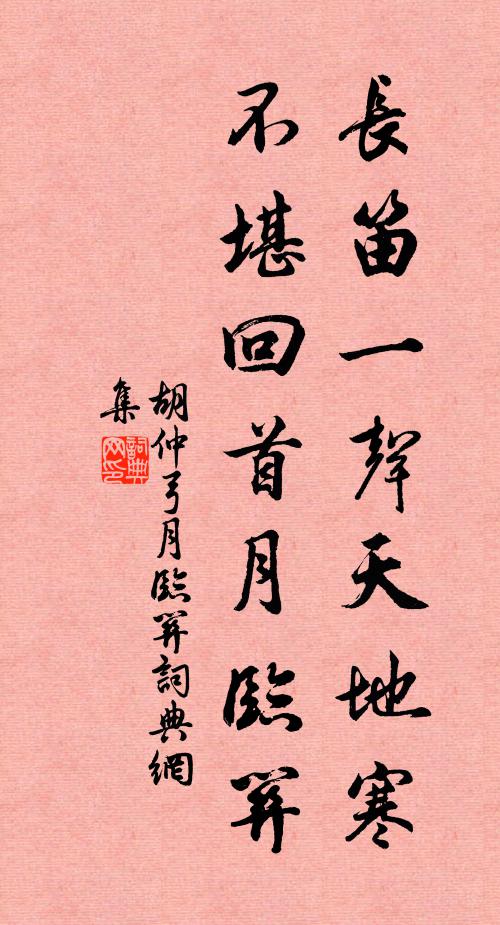 長笛一聲天地寒
不堪回首月臨關
胡仲弓月臨關詞典網
集
詞典網印